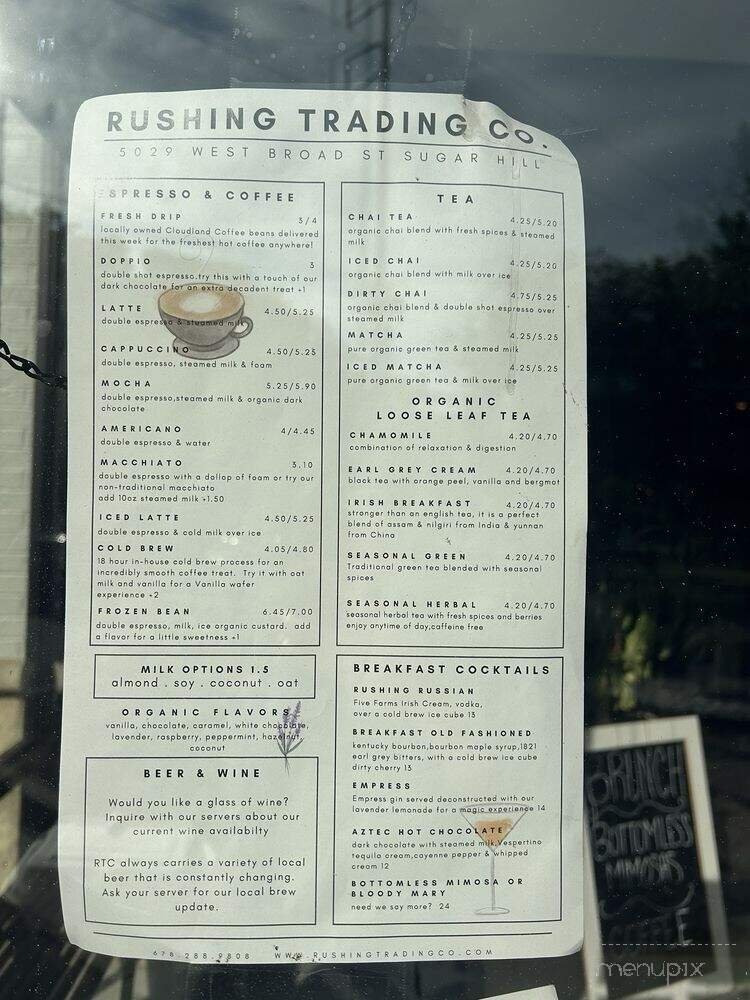 RUSHING TRADING CO.
5029 WEST BROAD ST SUGAR HILL
ESPRESSO & COFFEE
FRESH DRIP 3/4
locally owned Cloudland Coffee beans delivered
this week for the freshest hot coffee anywhere!
DOPPIO 3
double shot espresso.try this with a touch of our
dark chocolate for an extra decadent treat +1
LATTE 4.50/5.25
double espresso & steamed milk
CAPPUCCINO 4.50/5.25
double espresso, steamed milk & foam
MOCHA 5.25/5.90
double espresso,steamed milk & organic dark
chocolate
AMERICANO 4/4.45
double espresso & water
MACCHIATO 3.10
double espresso with a dollop of foam or try our
non-traditional macchiato
add 10oz steamed milk +1.50
ICED LATTE 4.50/5.25
double espresso & cold milk over ice
COLD BREW 4.05/4.80
18 hour in-house cold brew process for an
incredibly smooth coffee treat. Try it with oat
milk and vanilla for a Vanilla wafer
experience +2
FROZEN BEAN 6.45/7.00
double espresso, milk, ice organic custard. add
a flavor for a little sweetness +1
MILK OPTIONS 1.5
almond . soy . coconut . oat
ORGANIC FLAVORS
vanilla, chocolate, caramel, white chocolate,
lavender, raspberry, peppermint, hazelnut,
coconut
BEER & WINE
Would you like a glass of wine?
Inquire with our servers about our
current wine availabilty
RTC always carries a variety of local
beer that is constantly changing.
Ask your server for our local brew
update.
TEA
CHAI TEA 4.25/5.20
organic chai blend with fresh spices & steamed
milk
ICED CHAI 4.25/5.20
organic chai blend with milk over ice
DIRTY CHAI 4.75/5.25
organic chai blend & double shot espresso over
steamed milk
MATCHA 4.25/5.25
pure organic green tea & steamed milk
ICED MATCHA 4.25/5.25
pure organic green tea & milk over ice
ORGANIC
LOOSE LEAF TEA
CHAMOMILE 4.20/4.70
combination of relaxation & digestion
EARL GREY CREAM 4.20/4.70
black tea with orange peel, vanilla and bergmot
IRISH BREAKFAST 4.20/4.70
stronger than an english tea, it is a perfect
blend of assam & nilgiri from India & yunnan
from China
SEASONAL GREEN 4.20/4.70
Traditional green tea blended with seasonal
spices
SEASONAL HERBAL 4.20/4.70
seasonal herbal tea with fresh spices and berries
enjoy anytime of day,caffeine free
BREAKFAST COCKTAILS
RUSHING RUSSIAN
Five Farms Irish Cream, vodka,
over a cold brew ice cube 13
BREAKFAST OLD FASHIONED
kentucky bourbon,bourbon maple syrup,1821
earl grey bitters, with a cold brew ice cube
dirty cherry 13
EMPRESS
Empress gin served deconstructed with our
lavender lemonade for a magic experience 14
AZTEC HOT CHOCOLATE
dark chocolate with steamed milk,Vespertino
tequila cream,cayenne pepper & whipped
cream 12
BOTTOMLESS MIMOSA OR
BLOODY MARY
need we say more? 24
678.288.9808 WWW.RUSHINGTRADINGCO.COM
BRUNCH
BOTTOMLESS
MIMOSAS
COFFEE
menupix